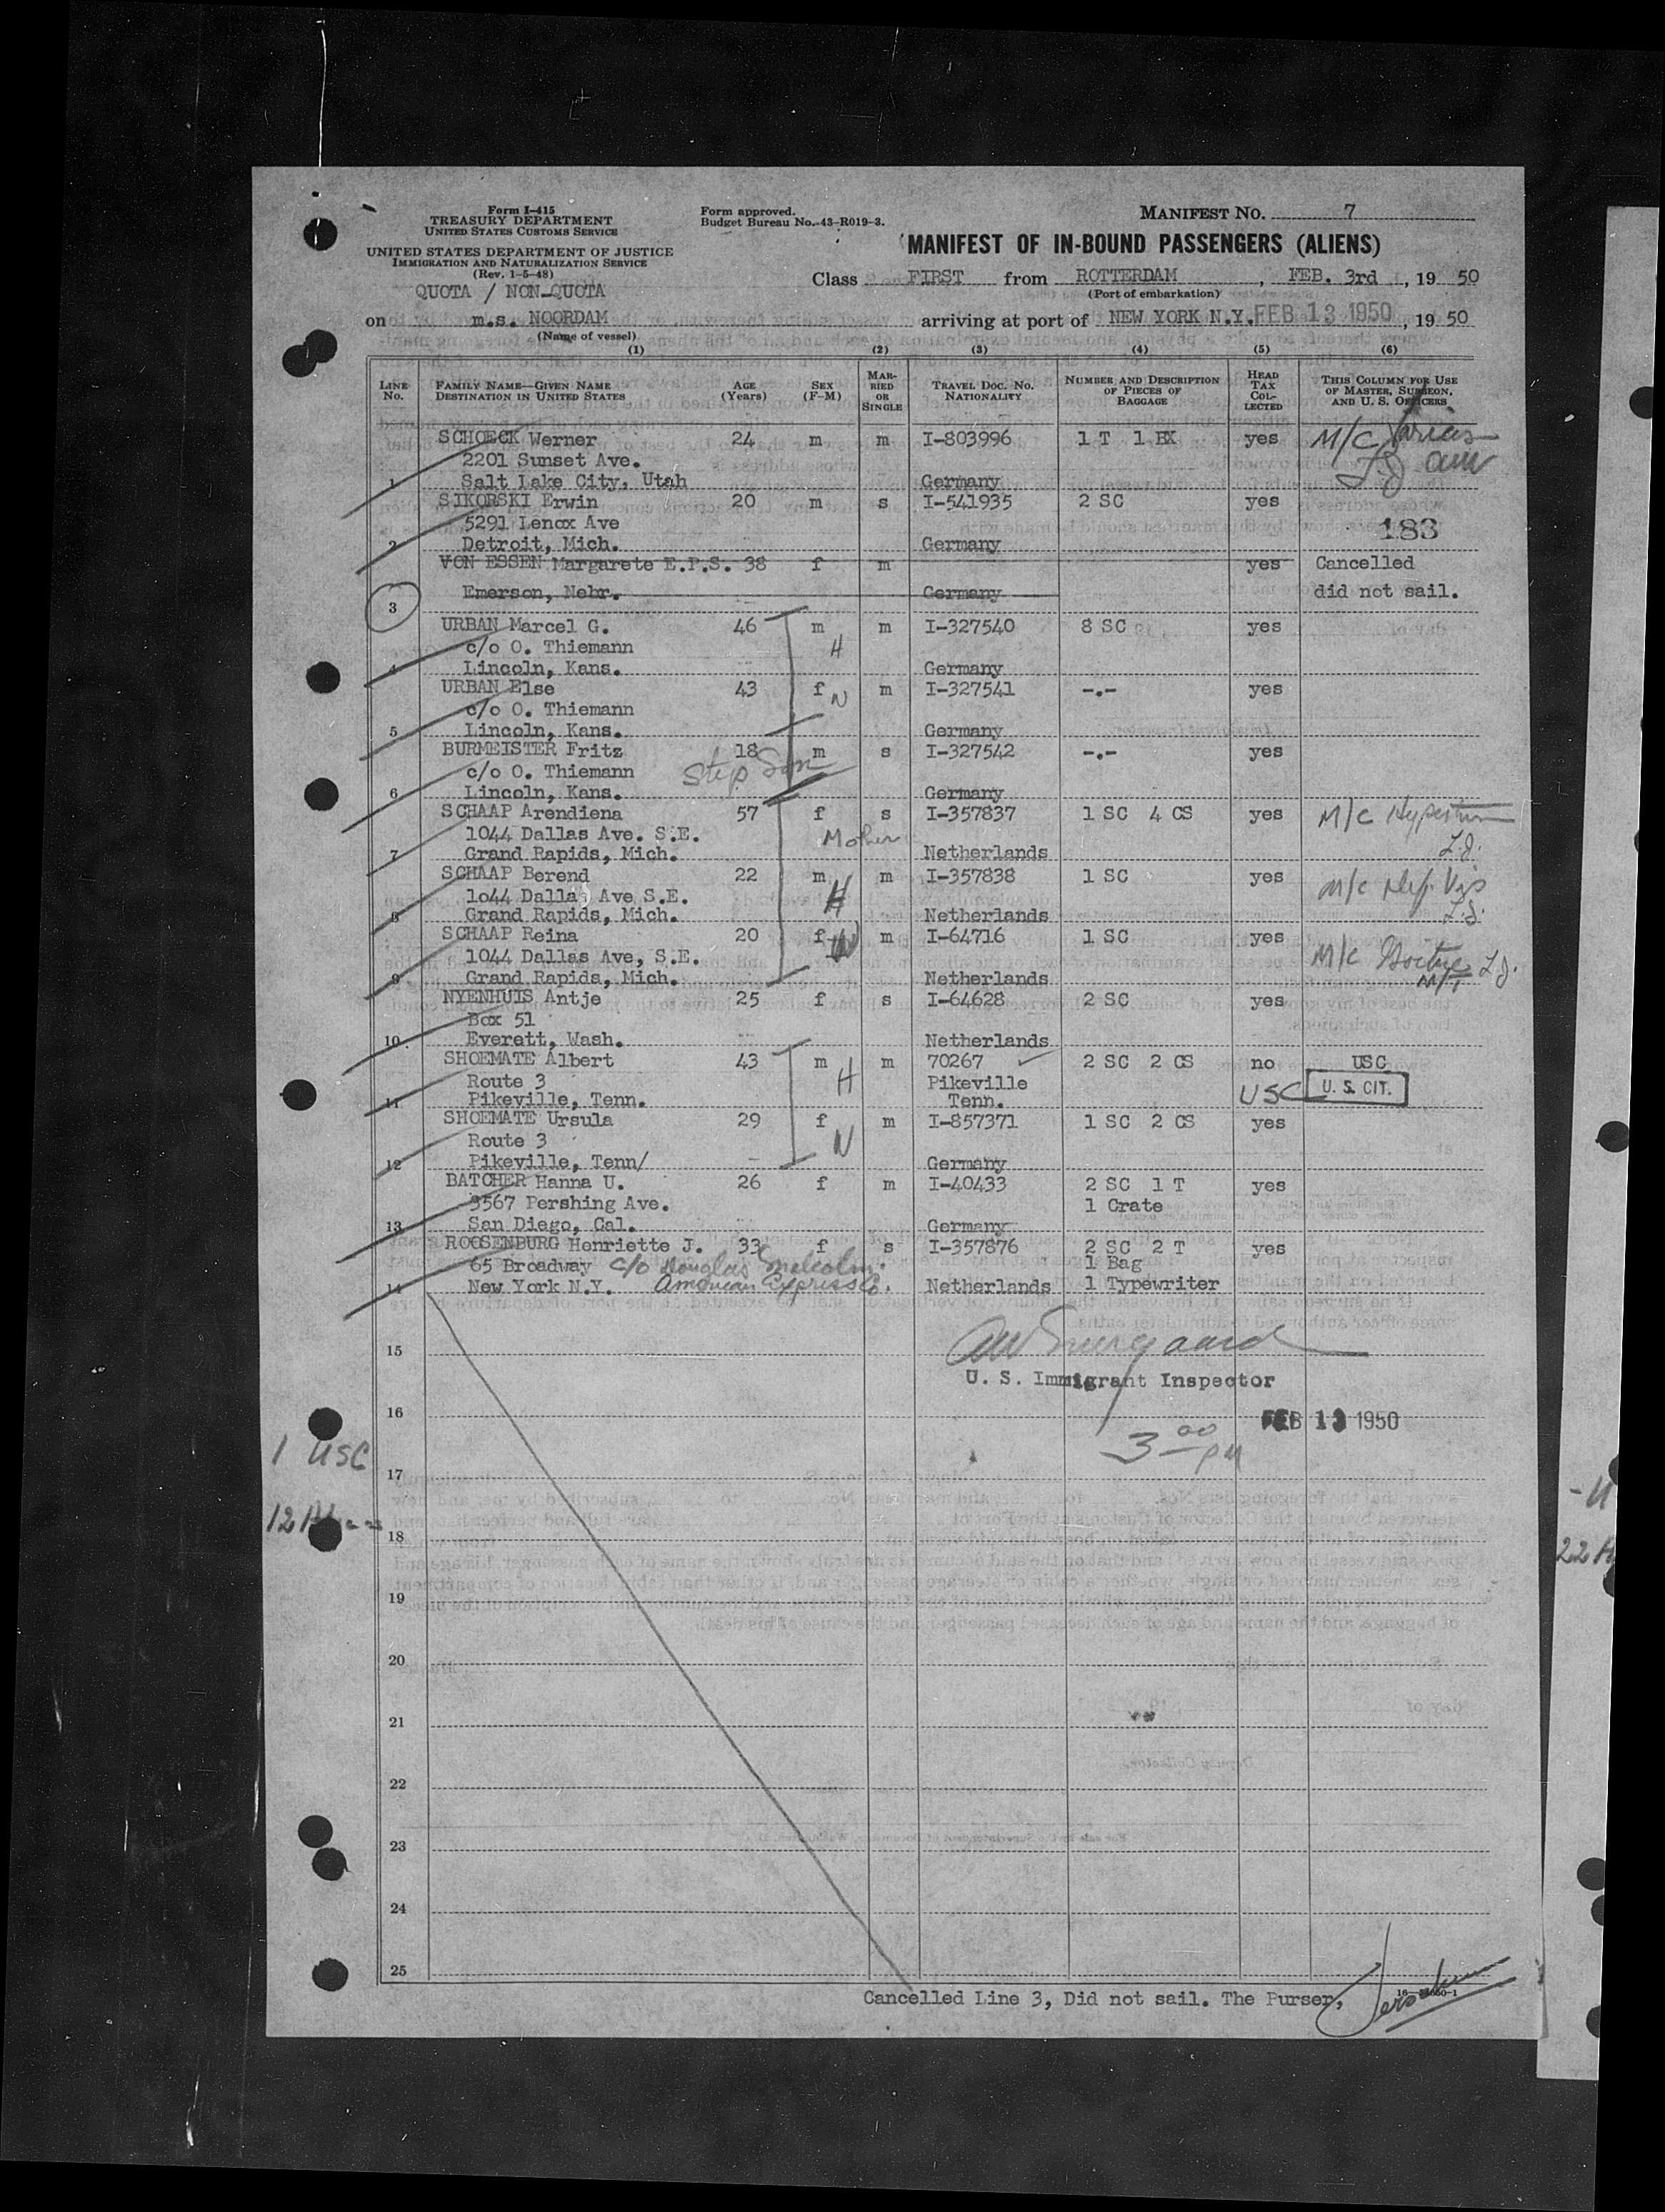 Form I-415
TREASURY DEPARTMENT
UNITED STATES CUSTOMS SERVICE
UNITED STATES DEPARTMENT OF JUSTICE
IMMIGRATION AND NATURALIZATION SERVICE
(Rev. 1-5-48)
QUOTA / NON-QUOTA
Form approved.
Budget Bureau No. 43-R019-3.
MANIFEST NO. 7
MANIFEST OF IN-BOUND PASSENGERS (ALIENS)
Class FIRST from ROTTERDAM, FEB. 3rd, 19 50
(Port of embarkation)
on m.s. NOORDAM arriving at port of NEW YORK N.Y. FEB 13 1950, 19 50
(Name of vessel)
(1) (2) (3) (4) (5) (6)
LINE No. FAMILY NAME—GIVEN NAME DESTINATION IN UNITED STATES AGE (Years) SEX (F-M) MARRIED OR SINGLE TRAVEL DOC. NO. NATIONALITY NUMBER AND DESCRIPTION OF PIECES OF BAGGAGE HEAD TAX COLLECTED THIS COLUMN FOR USE OF MASTER, SURGEON, AND U. S. OFFICERS
SCHOECK Werner 24 m m I-803996 1 T 1 BX yes M/C
2201 Sunset Ave.
1 Salt Lake City, Utah Germany
SIKORSKI Erwin 20 m s I-541935 2 SC yes
5291 Lenox Ave 183
2 Detroit, Mich. Germany
VON ESSEN Margarete E.P.S. 38 f m yes Cancelled
Emerson, Nebr. Germany did not sail.
3
URBAN Marcel G. 46 m m I-327540 8 SC yes
c/o O. Thiemann H
4 Lincoln, Kans. Germany
URBAN Else 43 f m I-327541 -.- yes
c/o O. Thiemann
5 Lincoln, Kans. Germany
BURMEISTER Fritz 18 m s I-327542 -.- yes
c/o O. Thiemann Step Son
6 Lincoln, Kans. Germany
SCHAAP Arendiena 57 f s I-357837 1 SC 4 CS yes M/C
1044 Dallas Ave. S.E. Mother
7 Grand Rapids, Mich. Netherlands
SCHAAP Berend 22 m m I-357838 1 SC yes M/c
1o44 Dallas Ave S.E. H
8 Grand Rapids, Mich. Netherlands
SCHAAP Reina 20 f W m I-64716 1 SC yes
1044 Dallas Ave, S.E. M/c
9 Grand Rapids, Mich. Netherlands
NYENHUIS Antje 25 f s I-64628 2 SC yes
Box 51
10 Everett, Wash. Netherlands
SHOEMATE Albert 43 m m 70267 2 SC 2 CS no USC
Route 3 H Pikeville USC U. S. CIT.
11 Pikeville, Tenn. Tenn.
SHOEMATE Ursula 29 f m I-857371 1 SC 2 CS yes
Route 3
12 Pikeville, Tenn/ Germany
BATCHER Hanna U. 26 f m I-40433 2 SC 1 T yes
3567 Pershing Ave. 1 Crate
13 San Diego, Cal. Germany
ROOSENBURG Henriette J. 33 f s I-357876 2 SC 2 T yes
65 Broadway c/o Douglas Malcolm 1 Bag
14 New York N.Y. American Express Co. Netherlands 1 Typewriter
15
U. S. Immigrant Inspector
16 FEB 13 1950
3 00 PM
1 USC
17
18
19
20
21
22
23
24
25
Cancelled Line 3, Did not sail. The Purser,